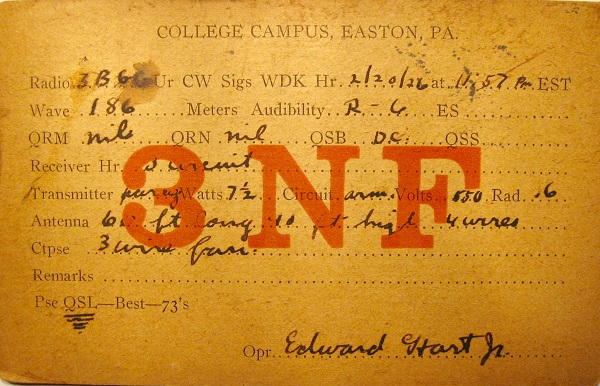 COLLEGE CAMPUS, EASTON, PA.
Radio 3BGG Ur CW Sigs WDK Hr. 2/20/26 at 11:57 Pm EST
Wave 186 Meters Audibility R-6 ES
QRM nil QRN nil QSB DC QSS
Receiver Hr. 3 circuit
Transmitter Watts 7½ Circuit Volts 550 Rad .6
Antenna ft long ft high 4 wires
Ctpse 3 wire fan.
Remarks
Pse QSL—Best—73's
Opr. Edward Hart Jr
3NF